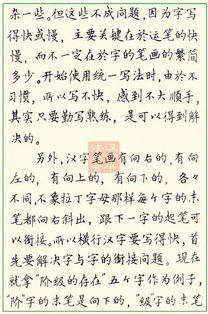 杂一些。但这些不成问题,因为字写
得快或慢,主要关键在於运笔的快
慢,而不一定在於字的笔画的繁简
多少。开始使用统一写法时,由於不
习惯,所以写不快,感到不大顺手,
其实只要勤写熟练,是可以得到解
决的。
另外,汉字笔画有向右的,有向
左的,有向上的,有向下的,各各
不同,不象拉丁字母那样每个字的末
笔都向右斜出,跟下一字的起笔可
以衔接。所以横行汉字要写得快,首
先要解决字与字的衔接问题。现在
就拿“阶级的存在”五个字作为例子,
“阶”字的末笔是向下的,“级”字的末笔